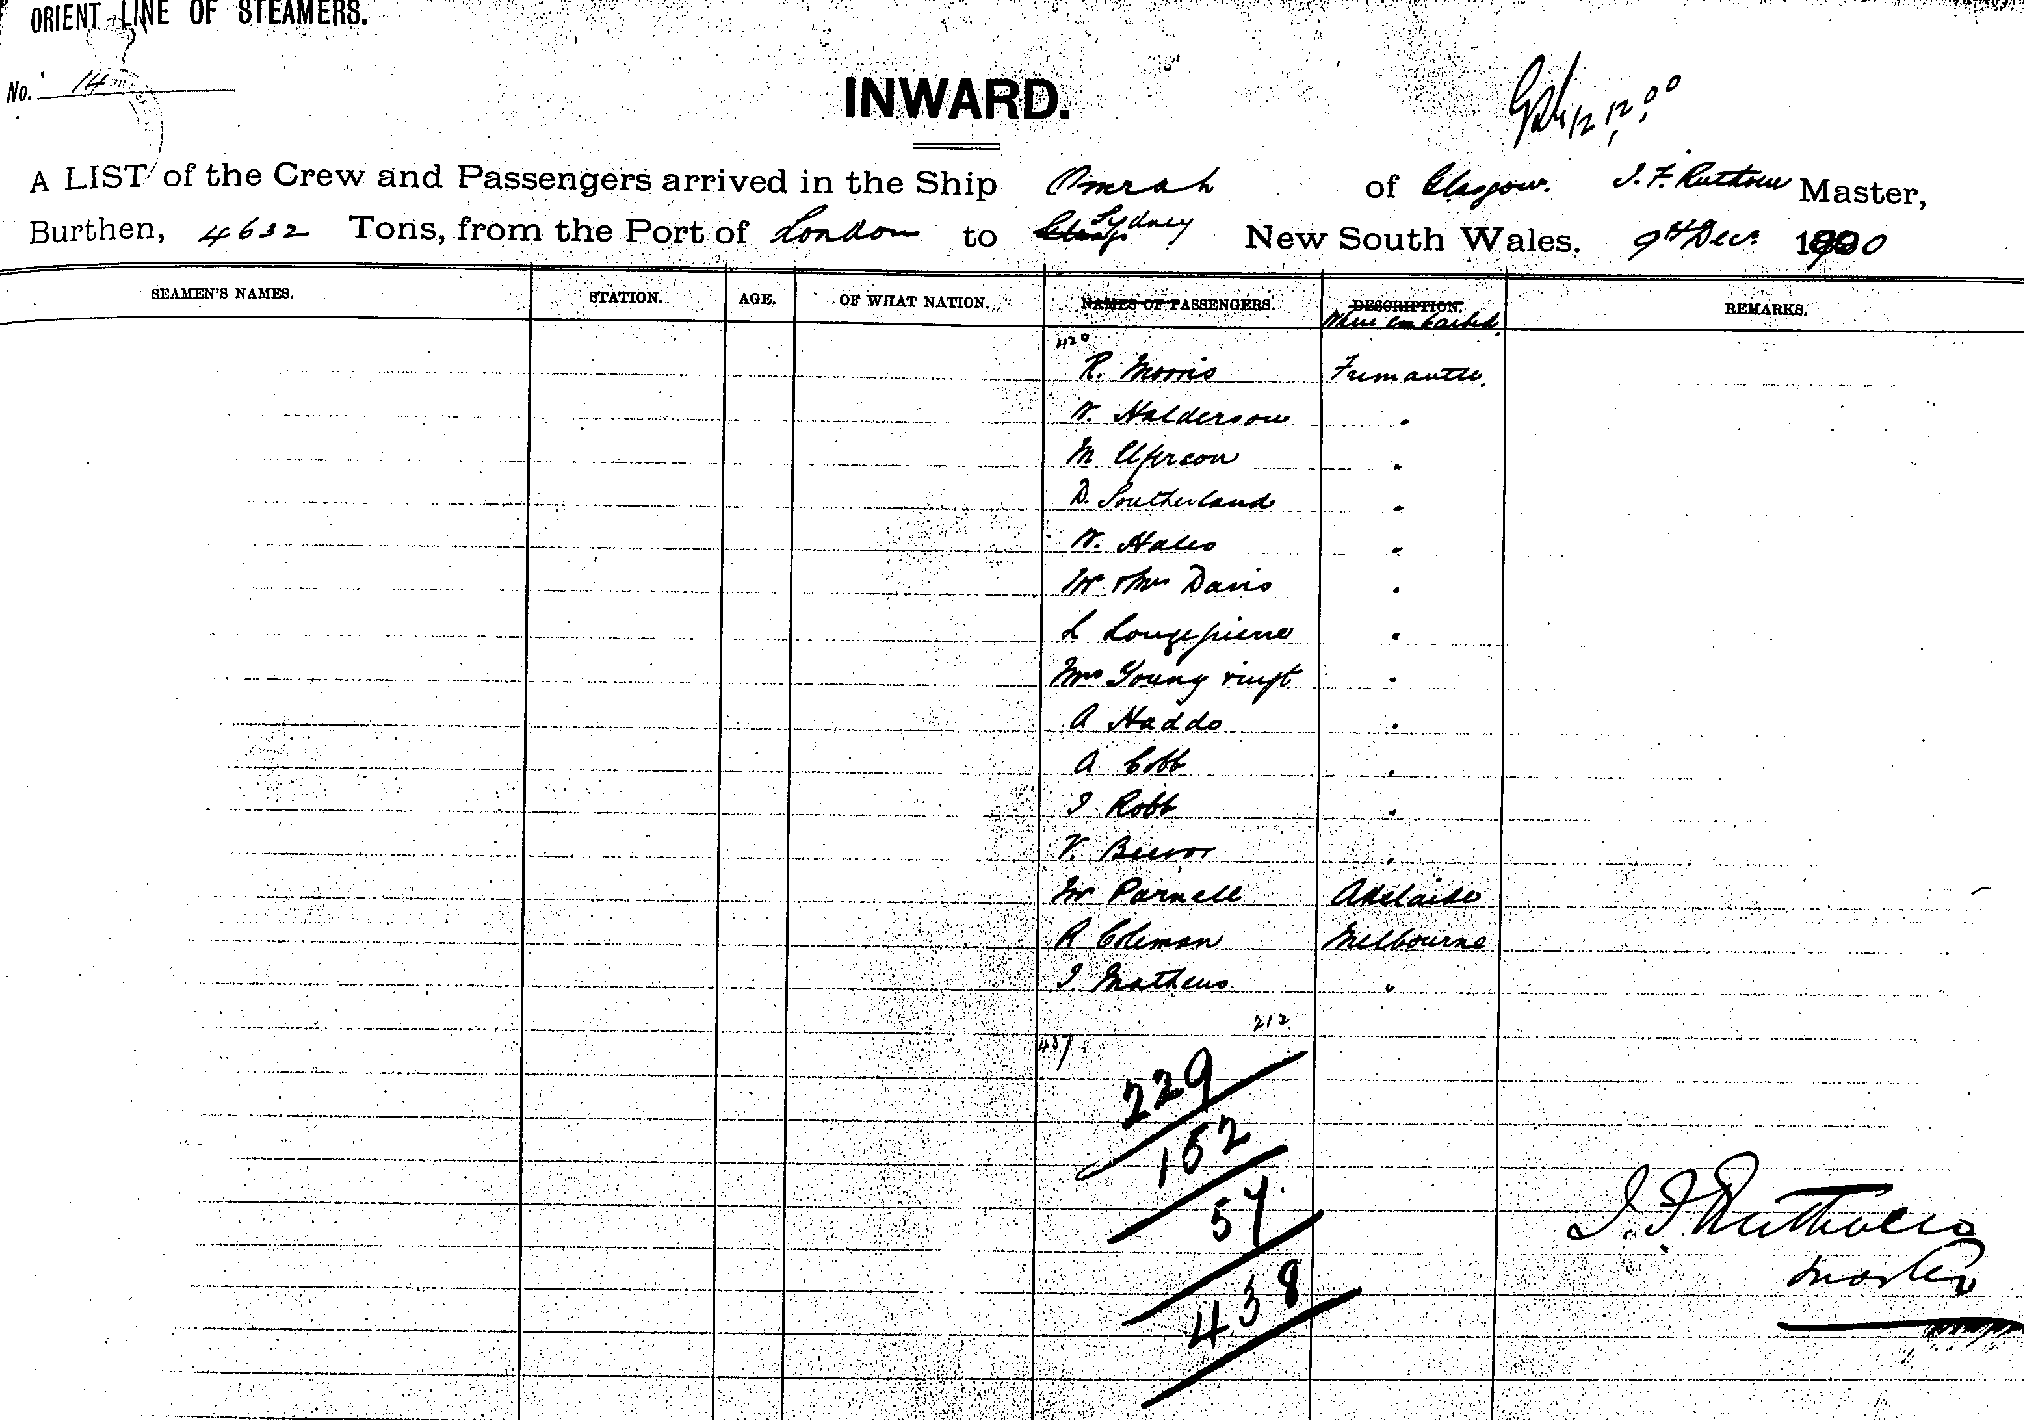 ORIENT LINE OF STEAMERS.
No. 14
INWARD.
12.12.00
A LIST of the Crew and Passengers arrived in the Ship Omrah of Glasgow. J. F. Ruthven Master,
Burthen, 4632 Tons, from the Port of London to Sydney New South Wales. 9th Decr. 1900
SEAMEN'S NAMES. STATION. AGE. OF WHAT NATION. NAMES OF PASSENGERS. DESCRIPTION. REMARKS.
Where embarked.
420
R. Morris Fremantle.
W. Halderson "
M "
D. Southerland "
W. Hales "
Mr & Mrs Davis "
L Longepierre "
Mrs Young & inft "
A Haddo "
A Cobb "
J Robb "
V. Beevor "
Mr Parnell Adelaide
R Coleman Melbourne
J Mathews "
212
437
229
152
57
438
J. F. Ruthven
Master